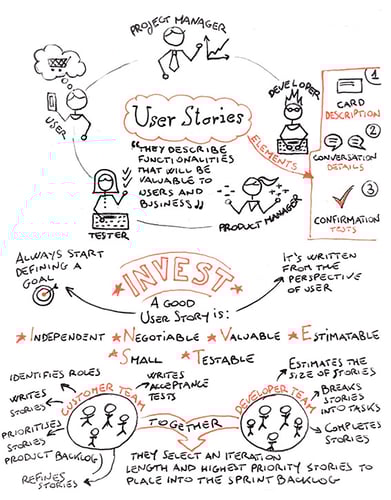 PROJECT MANAGER
USER
DEVELOPER
User Stories
"THEY DESCRIBE
FUNCTIONALITIES
THAT WILL BE
VALUABLE TO
USERS AND
BUSINESS"
ELEMENTS
1
CARD
DESCRIPTION
2
CONVERSATION
DETAILS
3
CONFIRMATION
TESTS
TESTER
PRODUCT MANAGER
ALWAYS START
DEFINING A
GOAL
INVEST
A GOOD
USER STORY IS:
IT'S WRITTEN
FROM THE
PERSPECTIVE
OF USER
INDEPENDENT NEGOTIABLE VALUABLE ESTIMATABLE
SMALL TESTABLE
IDENTIFIES ROLES
WRITES
STORIES
PRIORITISES
STORIES
PRODUCT BACKLOG
REFINES
STORIES
CUSTOMER TEAM
WRITES
ACCEPTANCE
TESTS
TOGETHER
DEVELOPER TEAM
ESTIMATES THE
SIZE OF STORIES
BREAKS
STORIES
INTO TASKS
COMPLETES
STORIES
THEY SELECT AN ITERATION
LENGTH AND HIGHEST PRIORITY STORIES TO
PLACE INTO THE SPRINT BACKLOG